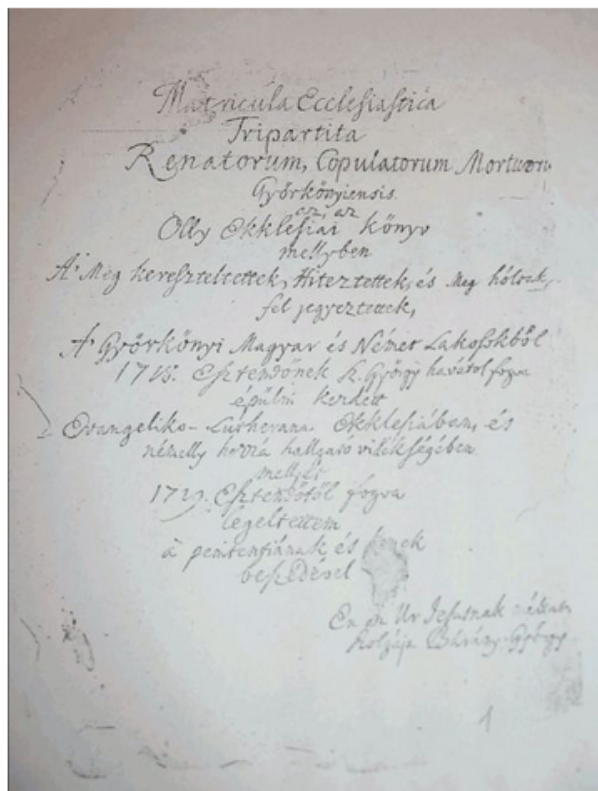 Matricula Ecclesiastica
Tripartita
Renatorum, Copulatorum Mortuoru
Györkönyiensis.
az, az
Olly Ekklesiai könyv
mellyben
A' Meg kereszteltettek, Hiteztettek, és Meg hóltak,
fel jegyeztettek,
A' Györkönyi Magyar és Német Lakosokból
Esztendőnek Sz. György havától fogva
épülni kezdett
Evangelico-Lutherana Ekklesiában, és
némelly hozzá hallgató vidékségében
mellyet
Esztendőtől fogva
legeltettem
à penitentziának és
beszédével
Én az Ur Jesusnak méltatlan
Szolgája Bárány György
1